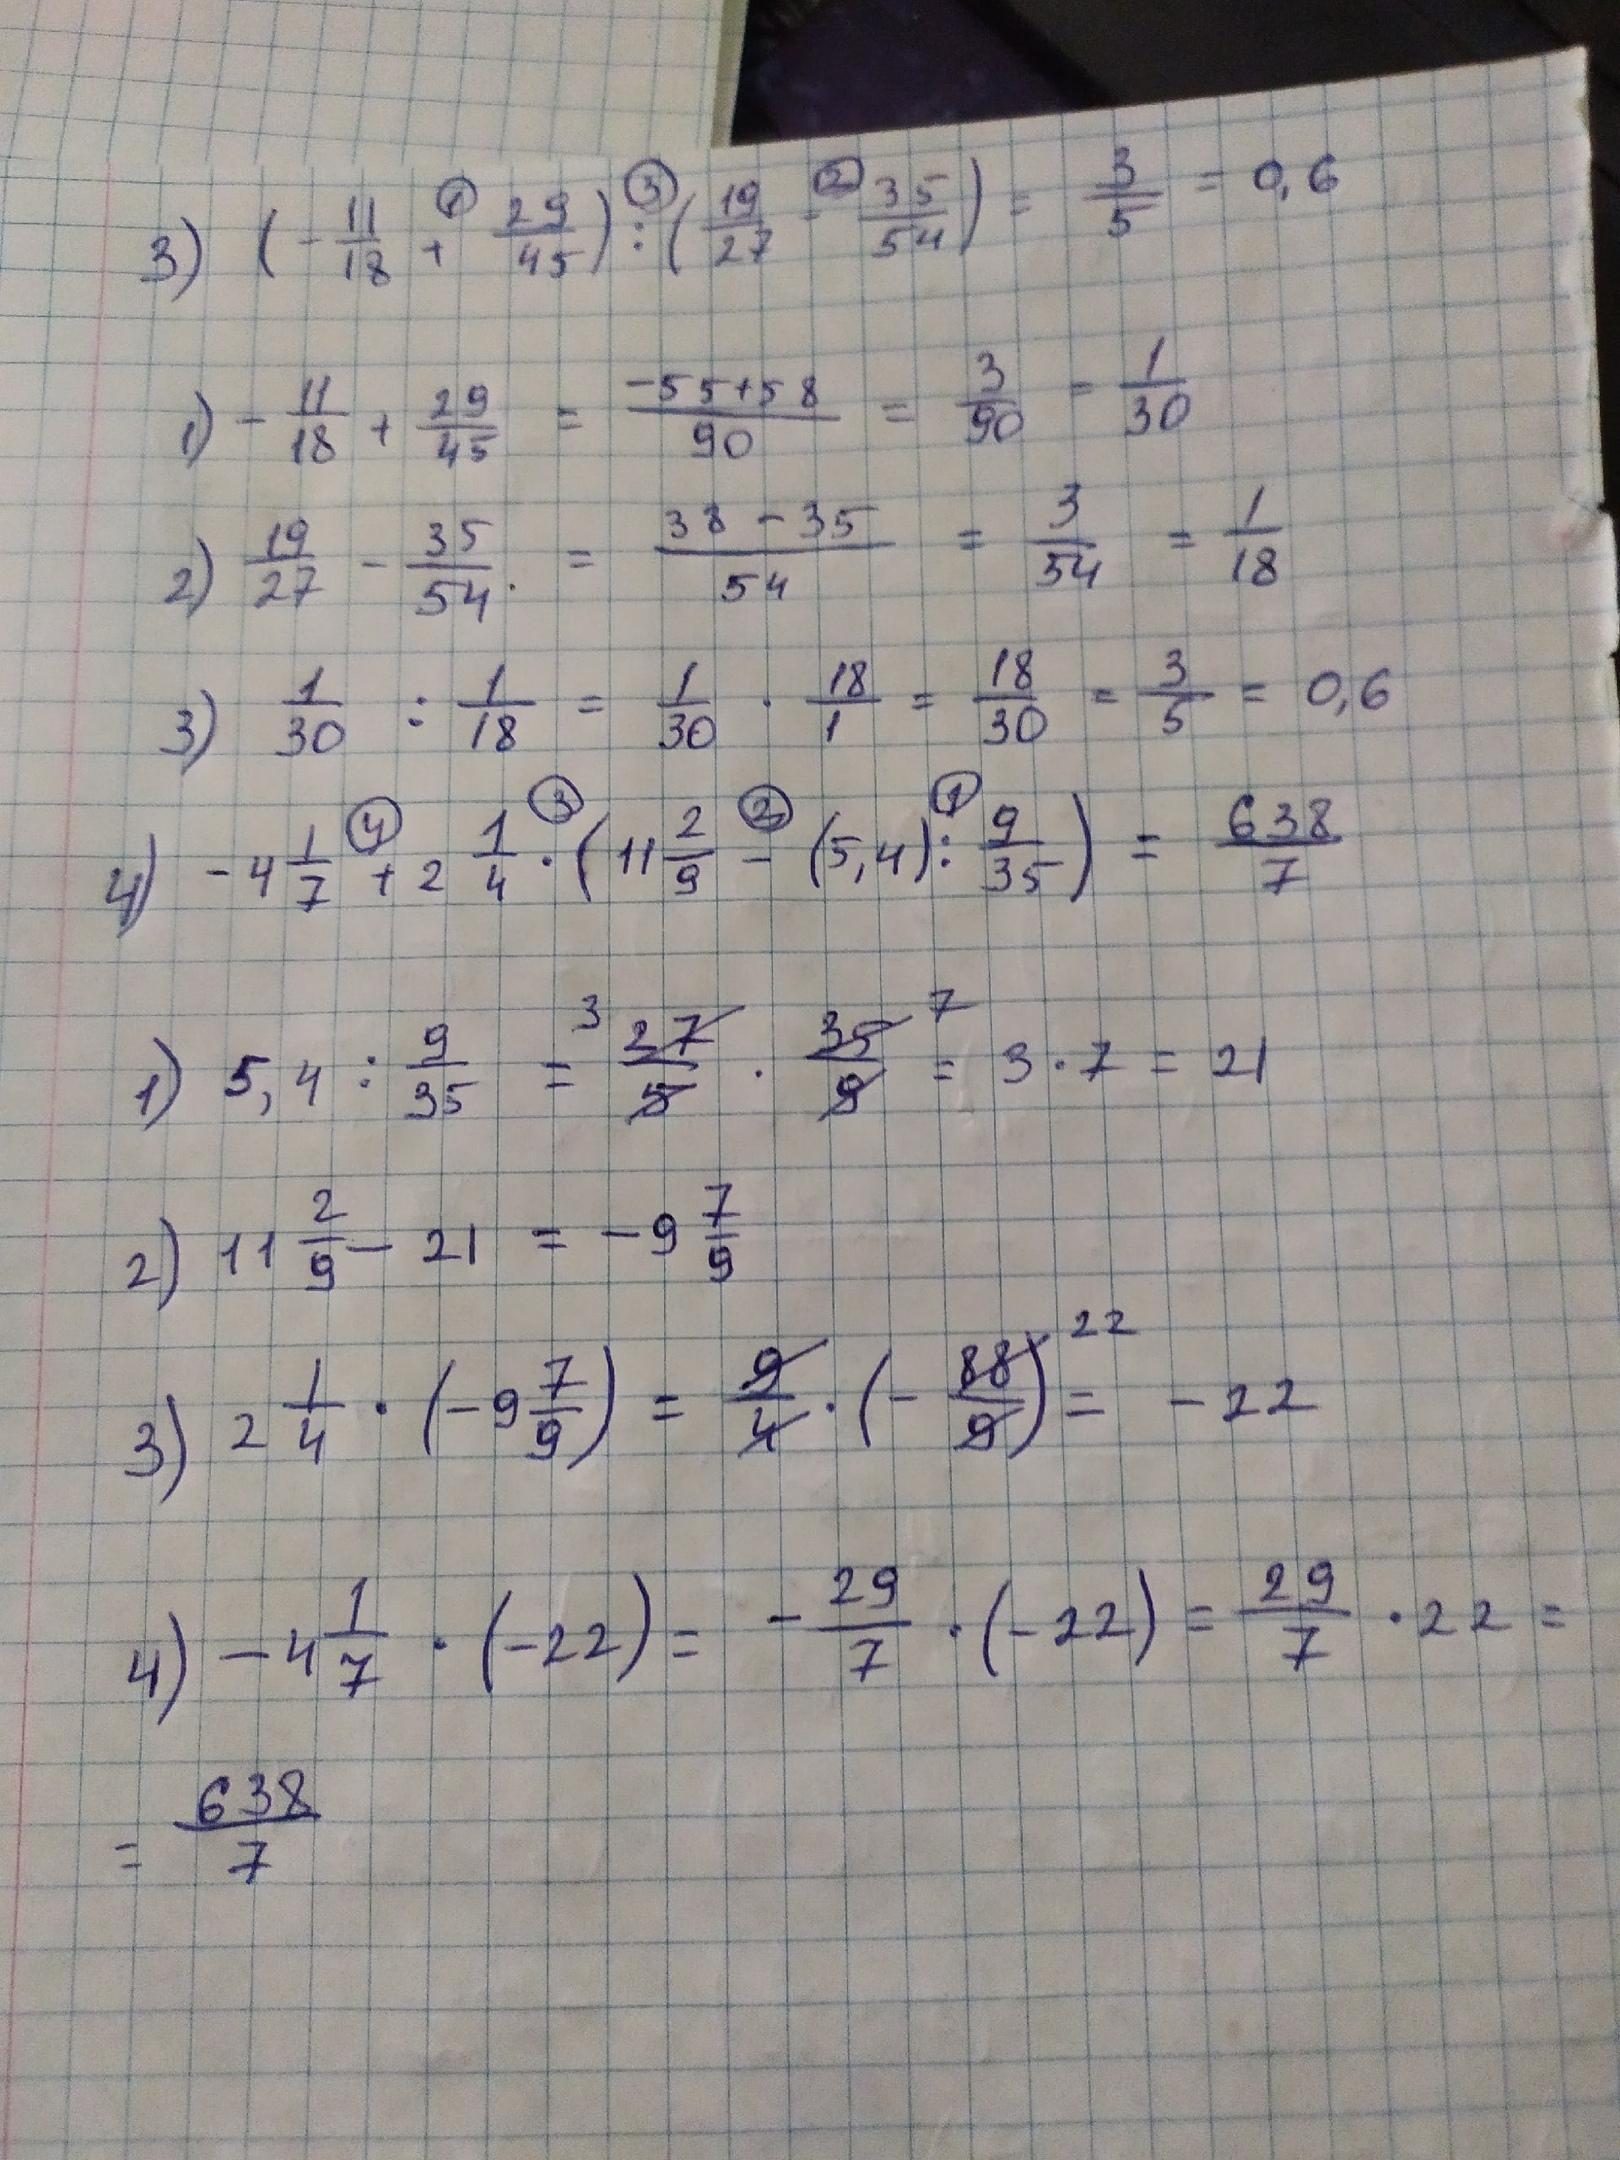 3) (-11/18 + ① 29/45) ③ : (19/27 - ② 35/54) = 3/5 = 0,6
1) - 11/18 + 29/45 = (-55+58)/90 = 3/90 = 1/30
2) 19/27 - 35/54 = (38 - 35)/54 = 3/54 = 1/18
3) 1/30 : 1/18 = 1/30 · 18/1 = 18/30 = 3/5 = 0,6
4) -4 1/7 ④ + 2 1/4 ③ · (11 2/9 ② - (5,4) ① : 9/35) = 638/7
1) 5,4 : 9/35 = 3 27/5 · 35/9 7 = 3 · 7 = 21
2) 11 2/9 - 21 = -9 7/9
3) 2 1/4 · (-9 7/9) = 9/4 · (- 88/9) 22 = -22
4) -4 1/7 · (-22) = - 29/7 · (-22) = 29/7 · 22 =
= 638/7